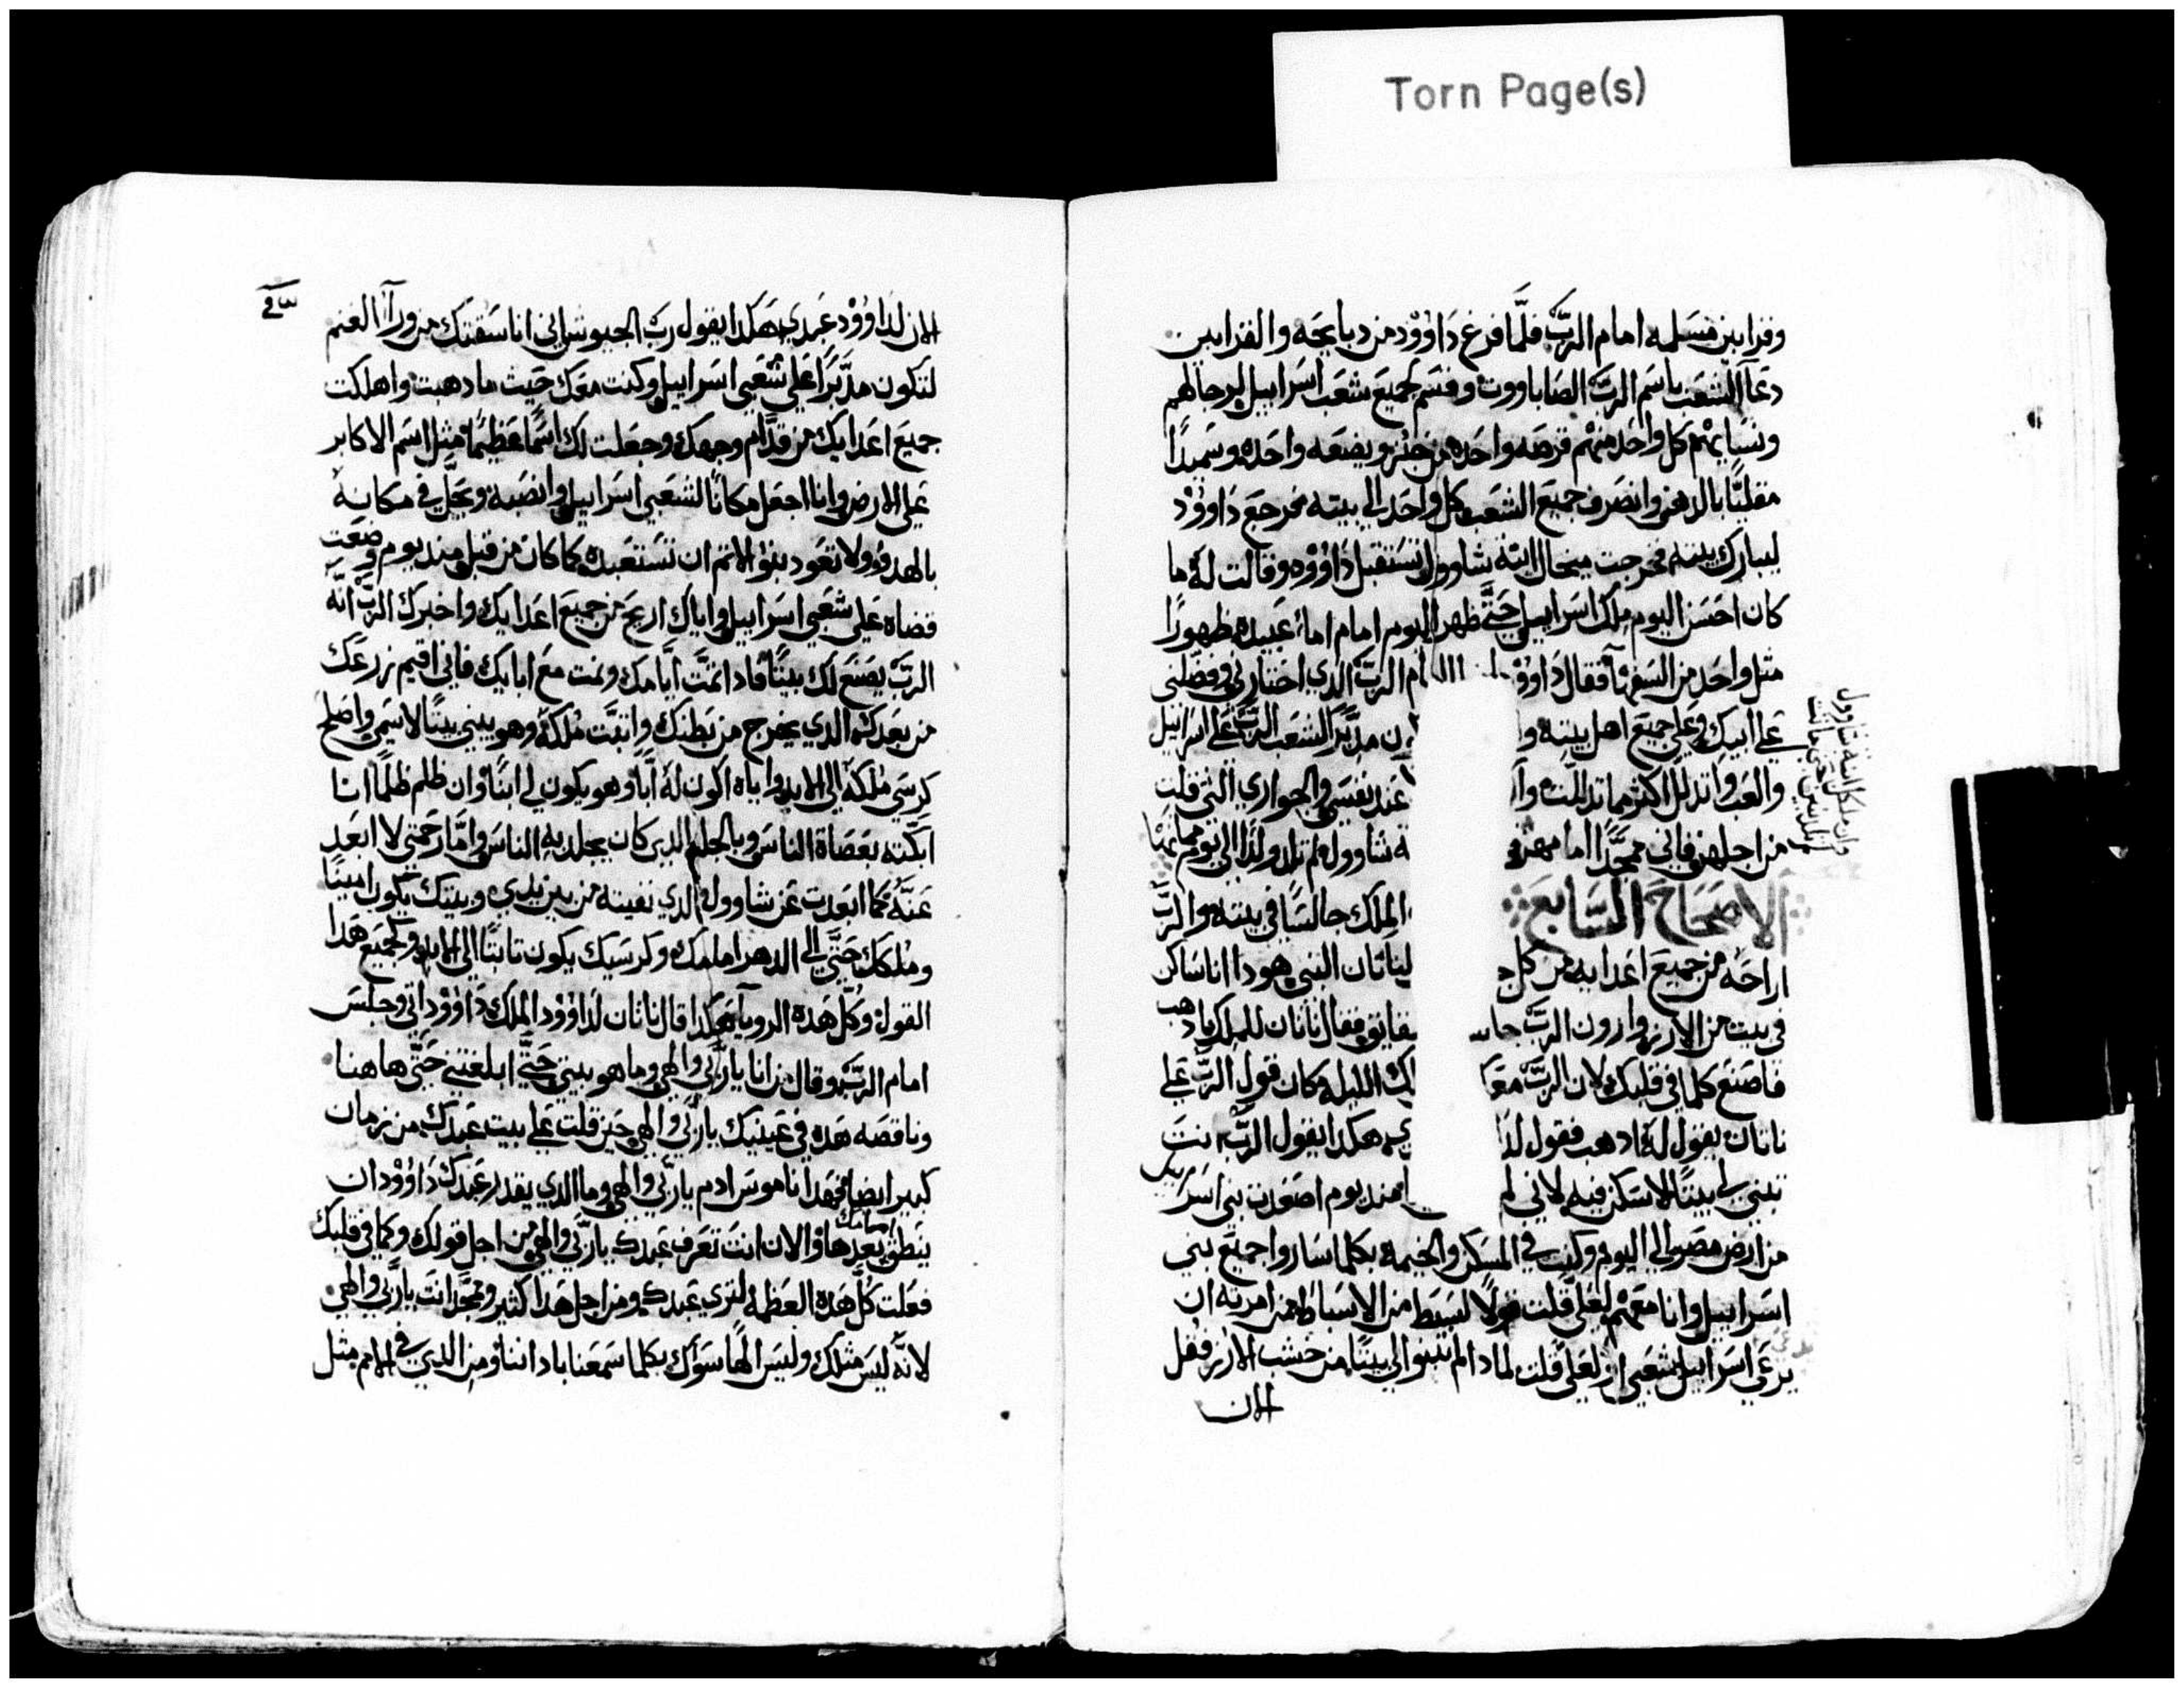 Torn Page(s)
وقرابين مسلمه امام الرب فلما فرغ داوود من دبايحه والقرابين
دعا الشعب باسم الرب الصاباووت وقسم لجميع شعب اسراييل لرجالهم
ونسايهم كل واحد منهم قرصه واحده من خبز وبضعه واحده وسميدا
مقليا بالدهن وانصرف جميع الشعب كل واحد الي بيته فرجع داوود
ليبارك بيته فخرجت ميخال ابنة شاوول تستقبل داوود وقالت له ما
كان احسن اليوم ملك اسراييل حتي ظهر اليوم امام اما عبيده ظهورا
مثل واحد من السفها فقال داوود ام الرب الدي اختارني وفضلني
علي ابيك وعلي جميع اهل بيته و ن مدبرا لشعب الرب علي اسراييل
والعب واتدلل اكثر مما تدللت وا عند نفسي والجواري التي قلت
من اجلهن فاني ممجدا اما ه شاوول لم تلد ولدا الي يوم مماتها
الاصحاح السابع الملك جالسا في بيته والرب
اراحه من جميع اعدايه من كل لناتان النبي هودا انا ساكن
في بيت من الارز وارون الرب فقال ناتان للملك ادهب
فاصنع كلما في قلبك لان الرب مع ك الليله وكان قول الرب علي
ناتان يقول له ادهب فقول ي هكدا يقول الرب انت
تبني لي بيتا لاسكن فيه لاني لم مند يوم اصعدت بني اسراييل
من ارض مصر الي اليوم وكنت في المسكن والخيمه بكلما ساروا جميع بني
اسراييل وانا معهم لعلي قلت قولا لسبط من الاسباط من امرته ان
يرعي اسراييل شعبي او لعلي قلت لمادا لم تبنوا لي بيتا من خشب الارز فقل
الان
الان لداوود عبدي هكدا يقول رب الجيوش اني انا سقتك من ورا الغنم
لتكون مدبرا علي شعبي اسراييل وكنت معك حيث ما دهبت واهلكت
جميع اعدايك من قدام وجهك وجعلت لك اسما عظيما مثل اسم الاكابر
علي الارض وانا اجعل مكانا لشعبي اسراييل وانصبه ويحل في مكانه
بالهدو ولا تعود بنوا الاتم ان تستعبده كما كان من قبل مند يوم وضعت
قضاه علي شعبي اسراييل واياك اريح من جميع اعدايك واخبرك الرب انه
الرب يصنع لك بيتا فادا تمت ايامك ونمت مع ابايك فاني اقيم زرعك
من بعدك الدي يخرج من بطنك واثبت ملكه وهو يبني بيتا لاسمي واصلح
كرسي ملكه الي الابد واياه اكون له ابا وهو يكون لي ابنا وان ظلم ظلما انا
ابكته بعصاة الناس وبالجلد الدي كان يجلد به الناس واما رحمتي لا ابعد
عنه كما ابعدت عن شاوول الدي نفيته من بين يدي وبيتك يكون امينا
وملكك حتي الي الدهر امامك وكرسيك يكون تابتا الي الابد وكجميع هدا
القول وكل هده الرويا هكدا قال ناتان لداوود الملك داوود اتي وجلس
امام الرب وقال من انا يا ربي والهي وما هو بيتي حتي ابلغتني حتي هاهنا
وناقصه هده في عينيك يا ربي والهي حين قلت علي بيت عبدك من زمان
كبير ايضا فهدا ناموس ادم يا ربي والهي وما الدي يقدر عبدك داوود ان
ينطق بعدها والان انت تعرف عبدك يا ربي والهي من اجل قولك وكما في قلبك
فعلت كل هده العظمه لتري عبدك ومن اجل هدا كثير وممجد انت يا ربي والهي
لانه ليس مثلك وليس الها سواك بكلما سمعنا باداننا ومن الدي في الامم مثل